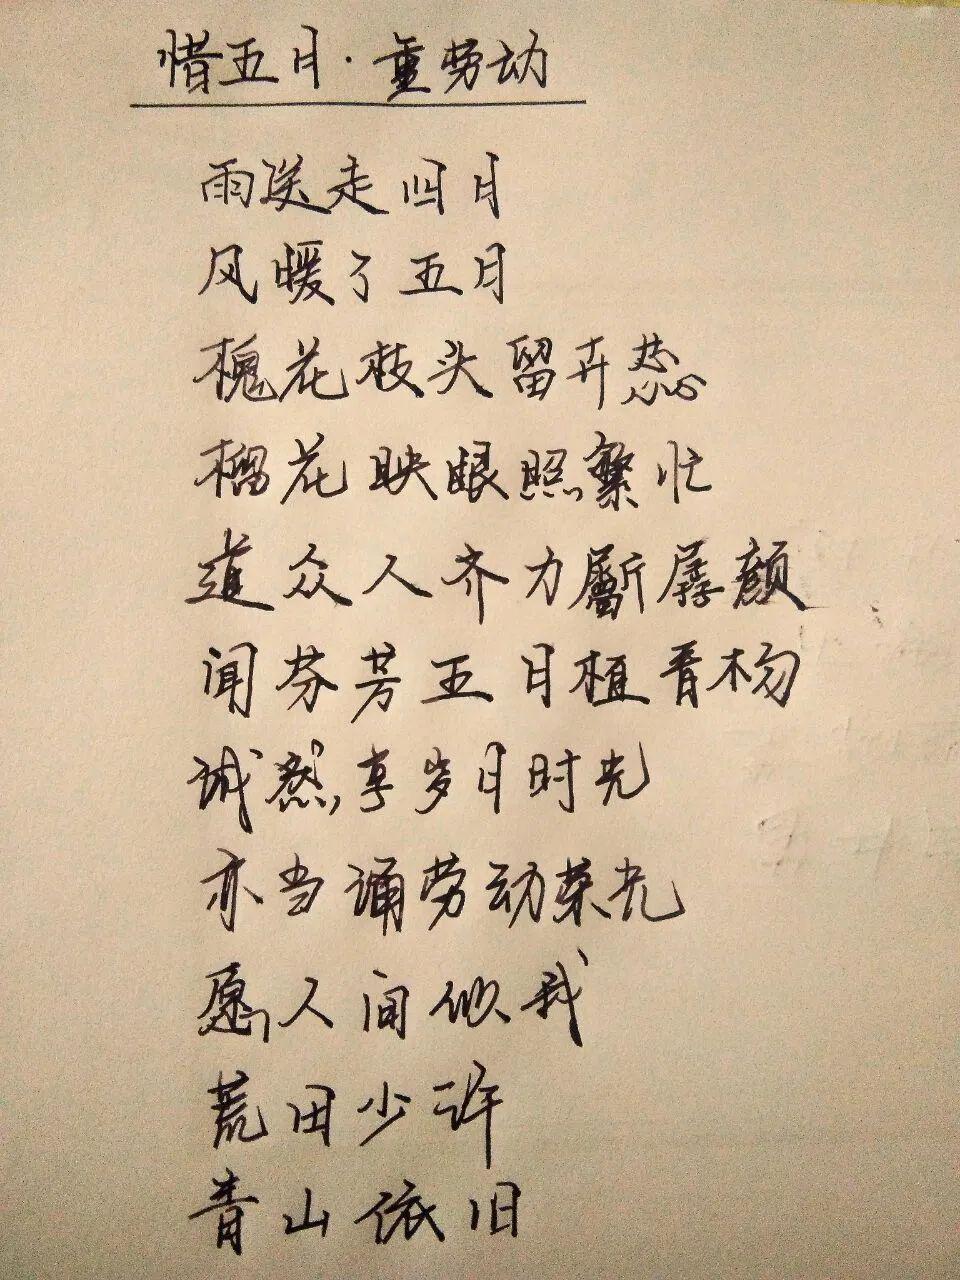 惜五月·重劳动
雨送走四月
风暖了五月
槐花枝头留卉蕊
榴花映眼照繁忙
道众人齐力斸孱颜
闻芬芳五月植青杨
诚然,享岁月时光
亦当诵劳动荣光
愿人间似我
荒田少许
青山依旧